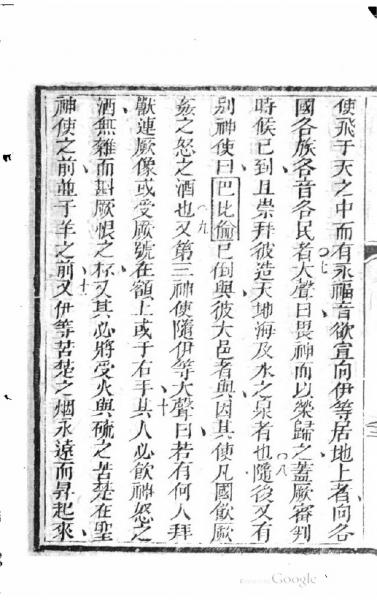 使飛于天之中而有永福音欲宣向伊等居地上者向各
國各族各音各民者大聲曰畏神而以榮歸之蓋厥審判
時候已到且崇拜彼造天地海及水之泉者也隨後又有
別神使曰巴比倫已倒與彼大邑者與因其使凡國飲厥
姦之怒之酒也又第三神使隨伊等大聲曰若有何人拜
獸連厥像或受厥號在額上或于右手其人必飲神怒之
酒無雜而斟厥恨之杯又其必將受火與硫之苦楚在聖
神使之前並于羊之前又伊等苦楚之烟永遠而昇起來
七
八
九
十
十一
Google